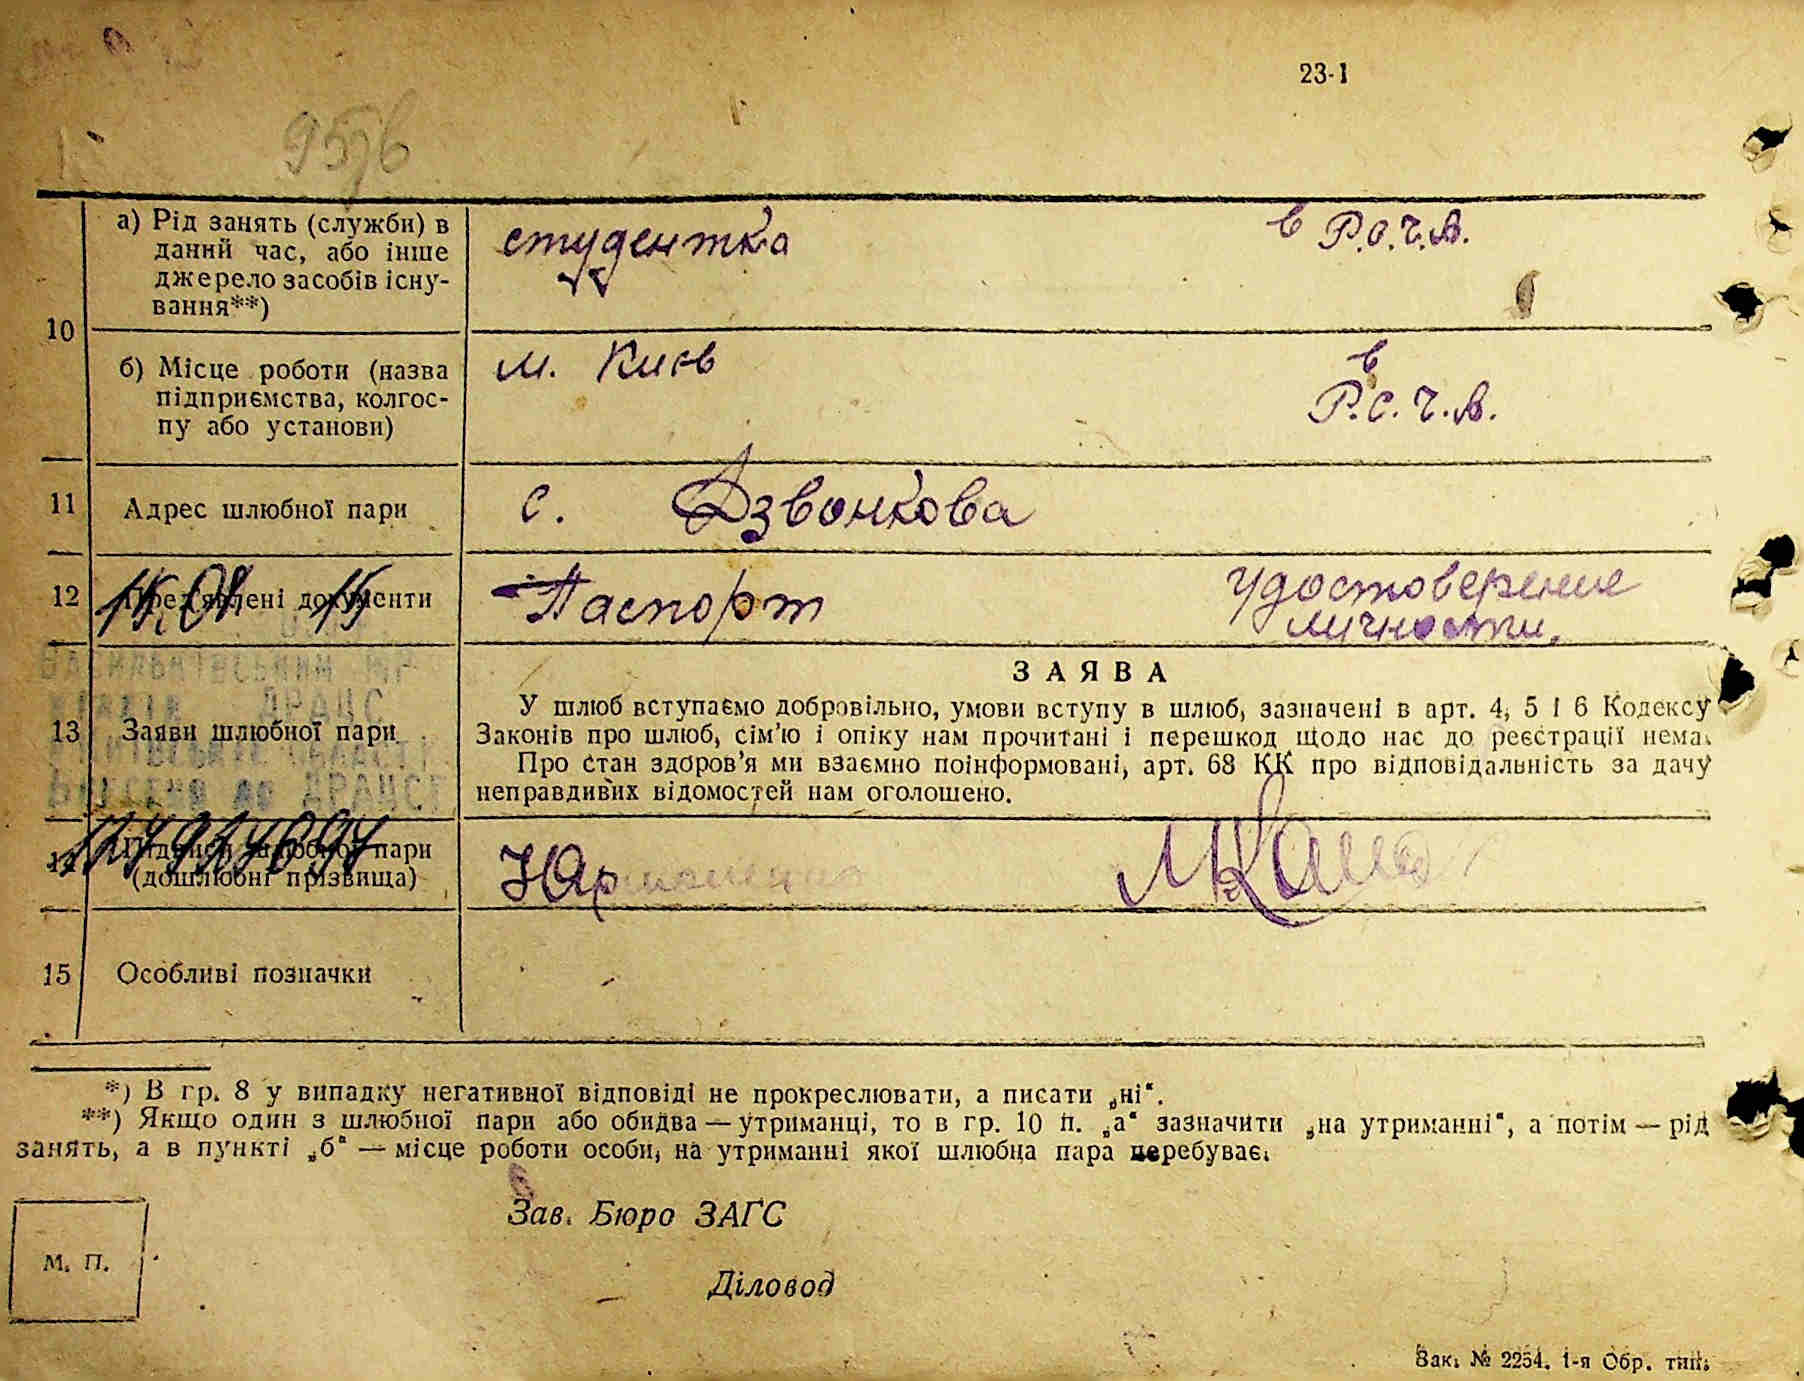 23-1
95/6
10
а) Рід занять (служби) в даний час, або інше джерело засобів існування**)
студентка
в Р.С.Ч.А.
б) Місце роботи (назва підприємства, колгоспу або установи)
м. Київ
в
Р.С.Ч.А.
11
Адрес шлюбної пари
с. Дзвонкова
12
Пред'явлені документи
Паспорт
удостоверение
личности.
ДРАЦС
13
Заяви шлюбної пари
ЗАЯВА
У шлюб вступаємо добровільно, умови вступу в шлюб, зазначені в арт. 4, 5 і 6 Кодексу
Законів про шлюб, сім'ю і опіку нам прочитані і перешкод щодо нас до реєстрації нема.
Про стан здоров'я ми взаємно поінформовані, арт. 68 КК про відповідальність за дачу
неправдивих відомостей нам оголошено.
14
Підписи шлюбної пари
(дошлюбні прізвища)
15
Особливі позначки
*) В гр. 8 у випадку негативної відповіді не прокреслювати, а писати „ні“.
**) Якщо один з шлюбної пари або обидва — утриманці, то в гр. 10 п. „а“ зазначити „на утриманні“, а потім — рід
занять, а в пункті „б“ — місце роботи особи, на утриманні якої шлюбна пара перебуває.
Зав. Бюро ЗАГС
М. П.
Діловод
Зак. № 2254. 1-я Обр. тип.